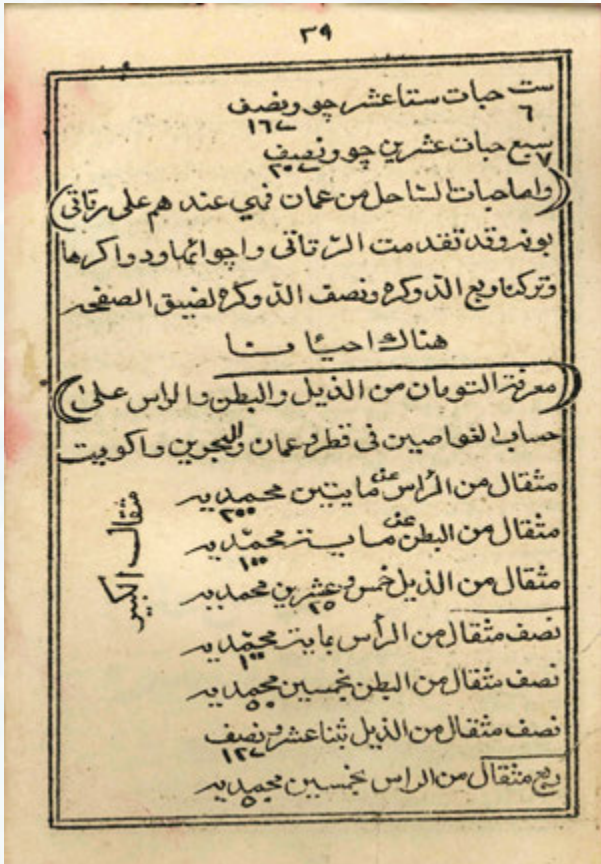 ٣٩
ست حبات ستاعشر چو ونصف
٦ ١٦
سبع حبات عشرين چو ونصف
٧ ٢٠
(واما حبات الساحل من عمان فهي عندهم على رتاتي)
بونه وقد تقدمت الرتاتي واچوانها ودواكرها
وتركنا ربع الدوكره ونصف الدوكره لضيق الصفحه
هناك احيانا
(معرفة التومان من الذيل والبطن والراس على)
حساب الغواصين في قطر وعمان والبحرين واكويت
مثقال من الرأس عن مايتين محمديه
٢٠٠
مثقال من البطن عن مايـة محمّديه
١٠٠
مثقال من الذيل خمس وعشرين محمديه
٢٥
نصف مثقال من الرأس بماية محمّديه
١٠٠
نصف مثقال من البطن بخمسين محمديه
٥٠
نصف مثقال من الذيل ثناعشر ونصف
١٢
ربع مثقال من الراس بخمسين محمديه
٥٠
مثقال الكبير